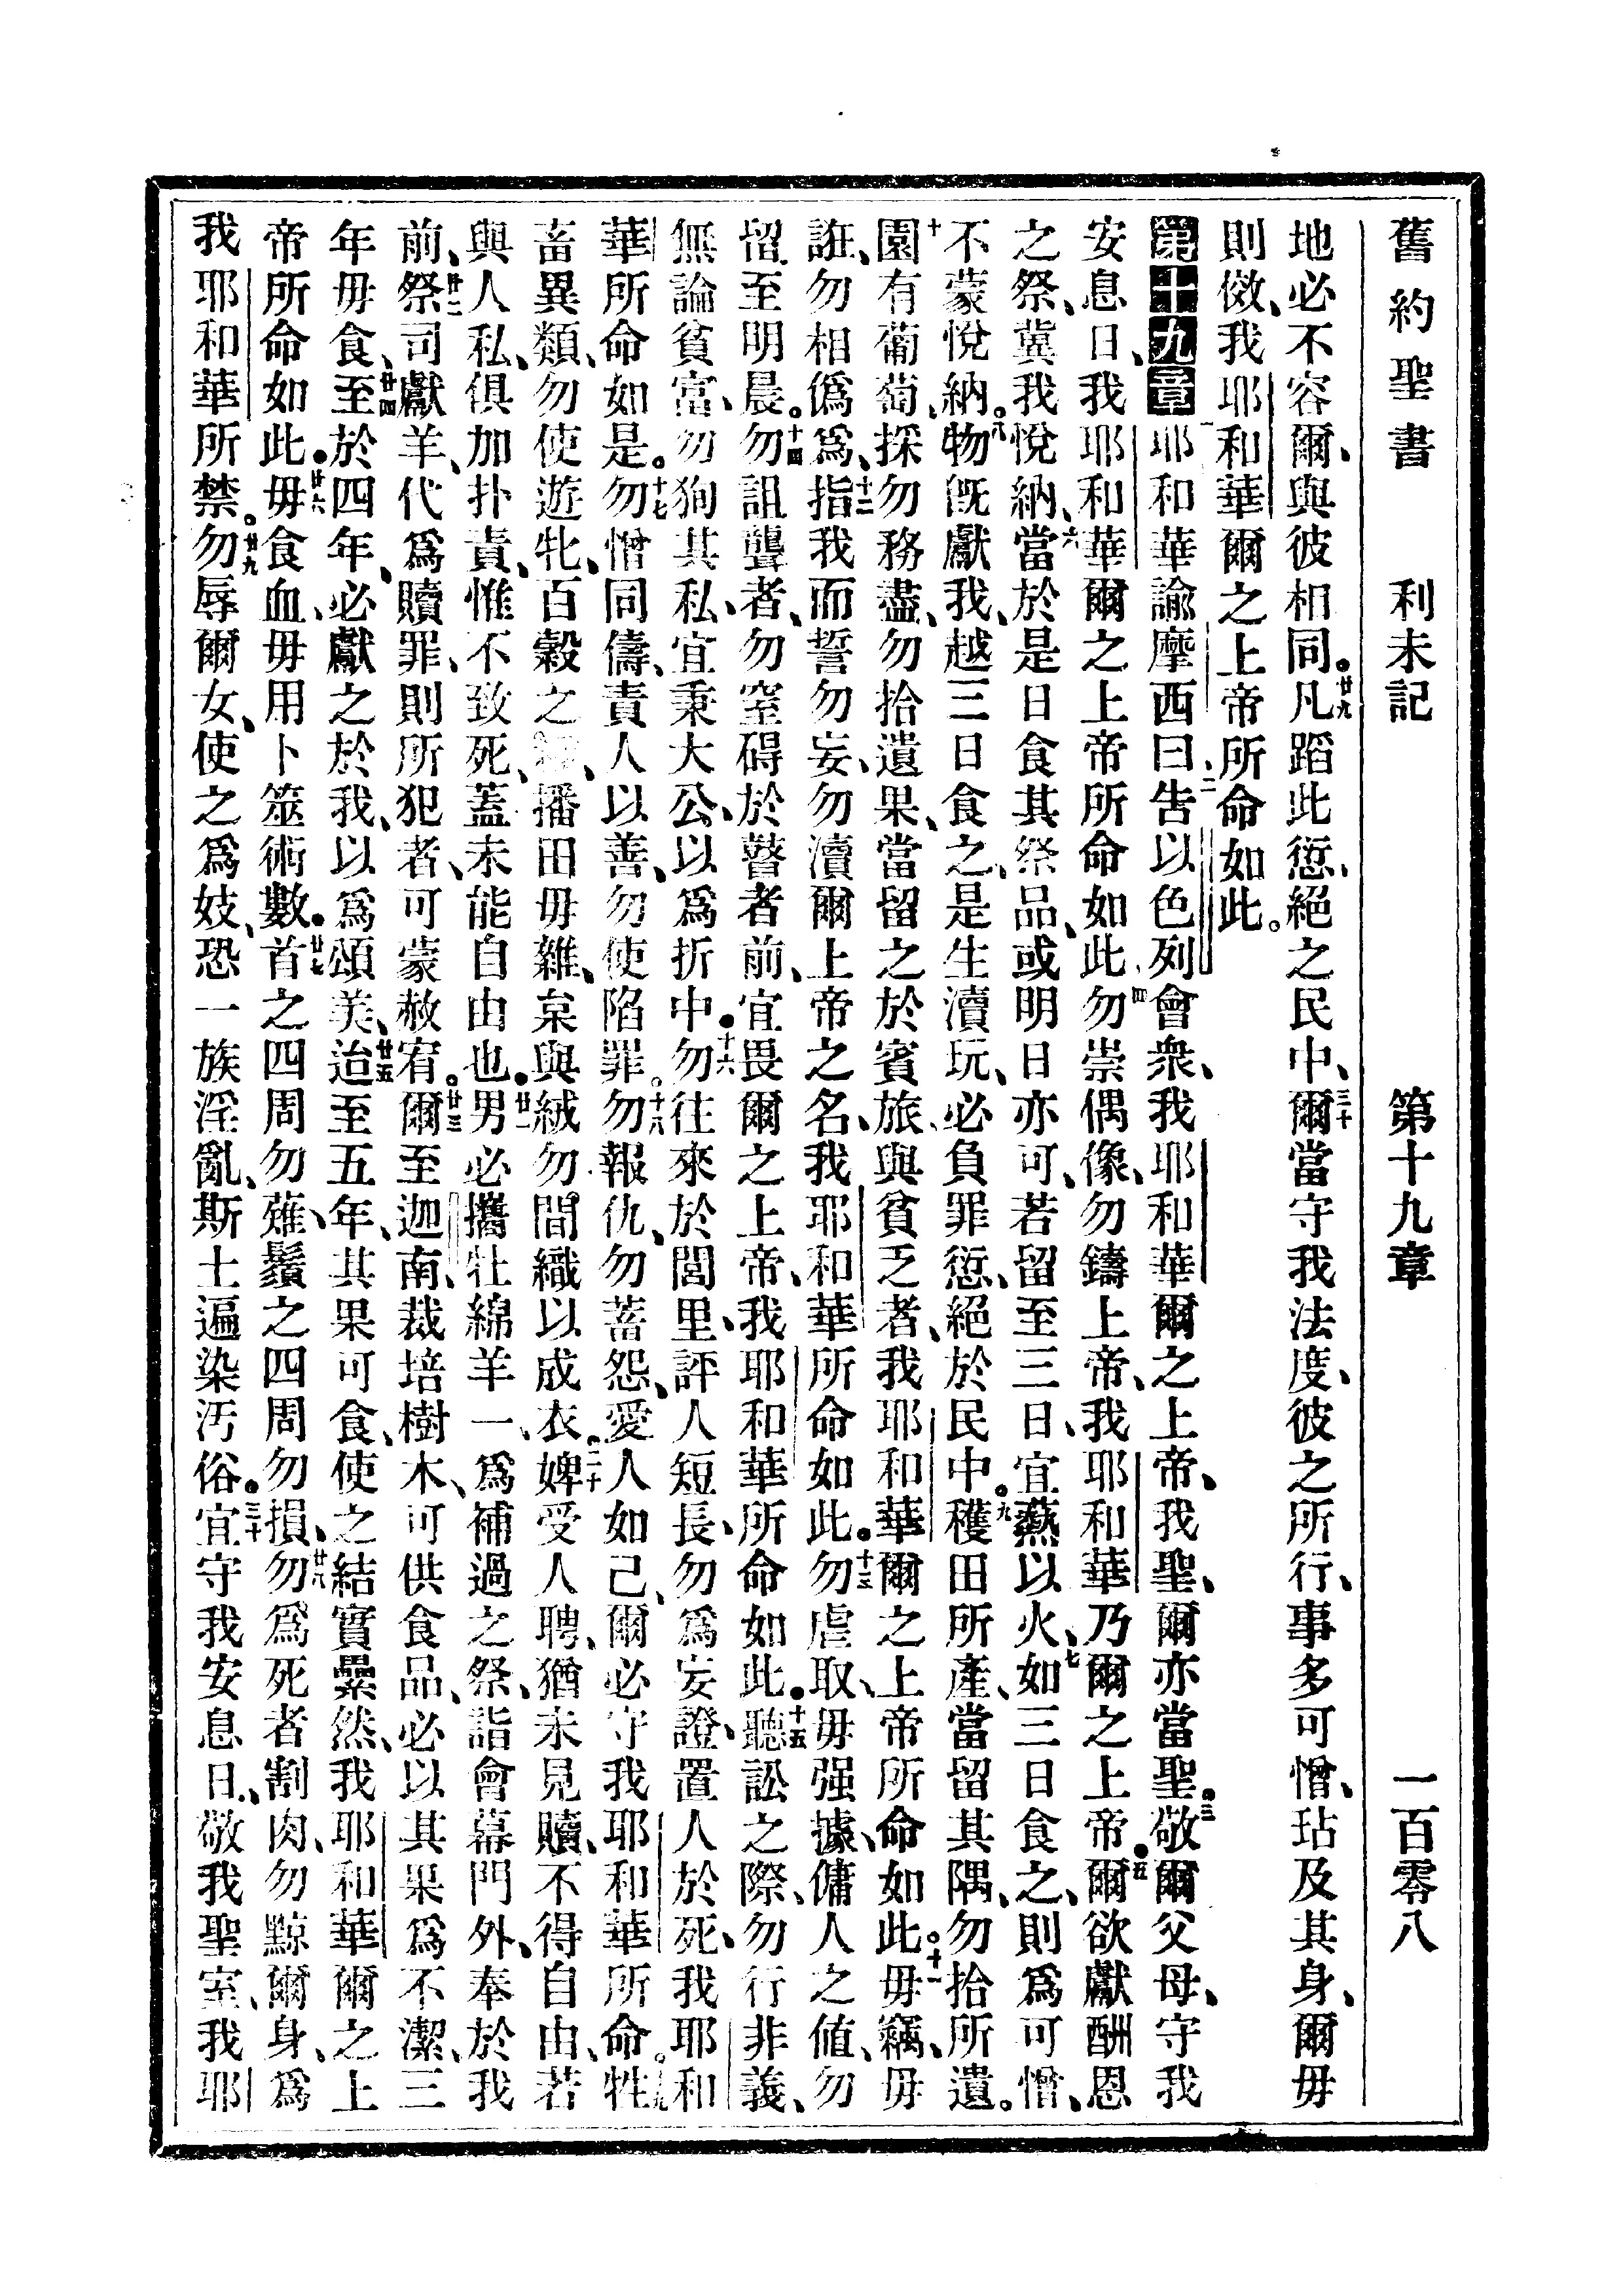 舊約聖書 利未記 第十九章 一百零八
地必不容爾、與彼相同。廿九凡蹈此愆、絕之民中、三十爾當守我法度、彼之所行、事多可憎、玷及其身、爾毋
則傚、我耶和華爾之上帝所命如此。
第十九章 一耶和華諭摩西曰、二告以色列會衆、我耶和華爾之上帝、我聖、爾亦當聖。三敬爾父母、守我
安息日、我耶和華爾之上帝所命如此、四勿崇偶像、勿鑄上帝、我耶和華乃爾之上帝。五爾欲獻酬恩
之祭、冀我悅納、六當於是日食其祭品、或明日亦可、若留至三日、宜爇以火、七如三日食之、則爲可憎、
不蒙悅納。八物旣獻我、越三日食之、是生瀆玩、必負罪愆、絕於民中。九穫田所產、當留其隅、勿拾所遺。
十園有葡萄、採勿務盡、勿拾遺果、當留之於賓旅、與貧乏者、我耶和華爾之上帝所命如此。十一毋竊、毋
誑、勿相僞爲、十二指我而誓勿妄、勿瀆爾上帝之名、我耶和華所命如此。十三勿虐取、毋强據、傭人之値、勿
留至明晨。十四勿詛聾者、勿窒碍於瞽者前、宜畏爾之上帝、我耶和華所命如此。十五聽訟之際、勿行非義、
無論貧富、勿狥其私、宜秉大公、以爲折中。十六勿往來於閭里、評人短長、勿爲妄證、置人於死、我耶和
華所命如是。十七勿憎同儔、責人以善、勿使陷罪。十八勿報仇、勿蓄怨、愛人如己、爾必守我耶和華所命。十九牲
畜異類、勿使遊牝、百穀之播田毋雜、枲與絨勿間織以成衣。二十婢受人聘、猶未見贖、不得自由、若
與人私、俱加扑責、惟不致死、蓋未能自由也。廿一男必攜牡綿羊一、爲補過之祭、詣會幕門外、奉於我
前、廿二祭司獻羊、代爲贖罪、則所犯者、可蒙赦宥。廿三爾至迦南、裁培樹木、可供食品、必以其果爲不潔、三
年毋食、廿四至於四年、必獻之於我、以爲頌美、廿五迨至五年、其果可食、使之結實纍然、我耶和華爾之上
帝所命如此。廿六毋食血、毋用卜筮術數。廿七首之四周勿薙、鬚之四周勿損、廿八勿爲死者割肉、勿黥爾身、爲
我耶和華所禁。廿九勿辱爾女、使之爲妓、恐一族淫亂、斯土遍染汚俗。三十宜守我安息日、敬我聖室、我耶